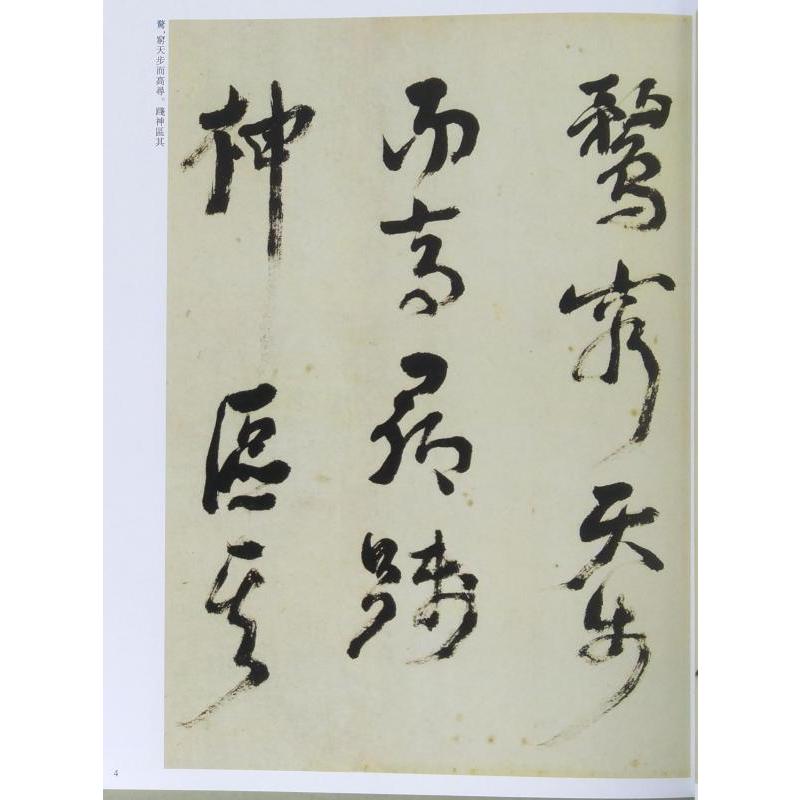 鶩窮天步
而高尋踐
神區其
鶩，窮天步而高尋。踐神區其
4